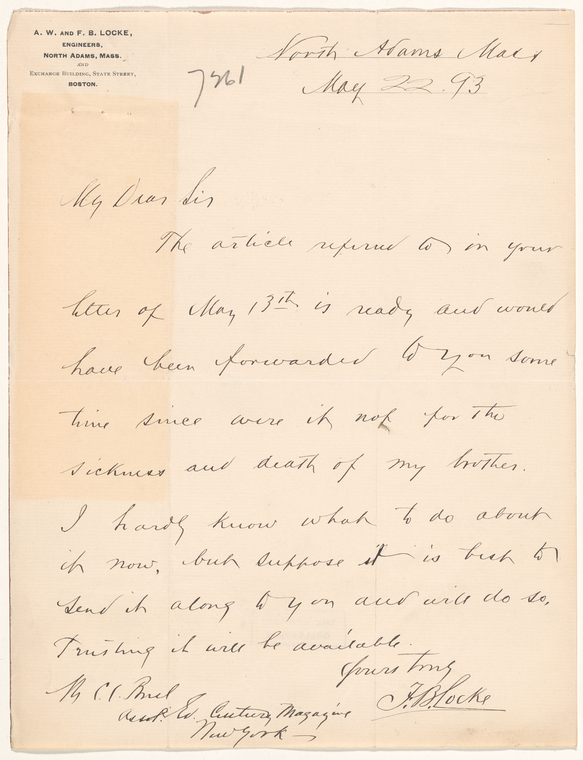 A. W. AND F. B. LOCKE,
ENGINEERS,
NORTH ADAMS, MASS.
AND
EXCHANGE BUILDING, STATE STREET,
BOSTON.
7361
North Adams Mass
May 22. 93
My Dear Sir
The article refered to in your
letter of May 13th is ready and would
have been forwarded to you some
time since were it not for the
sickness and death of my brother.
I hardly know what to do about
it now, but suppose it is best to
send it along to you and will do so,
Trusting it will be available.
Yours truly
F. B. Locke
Mr C. C. Buel
Assot. Ed. Century Magazine
New York